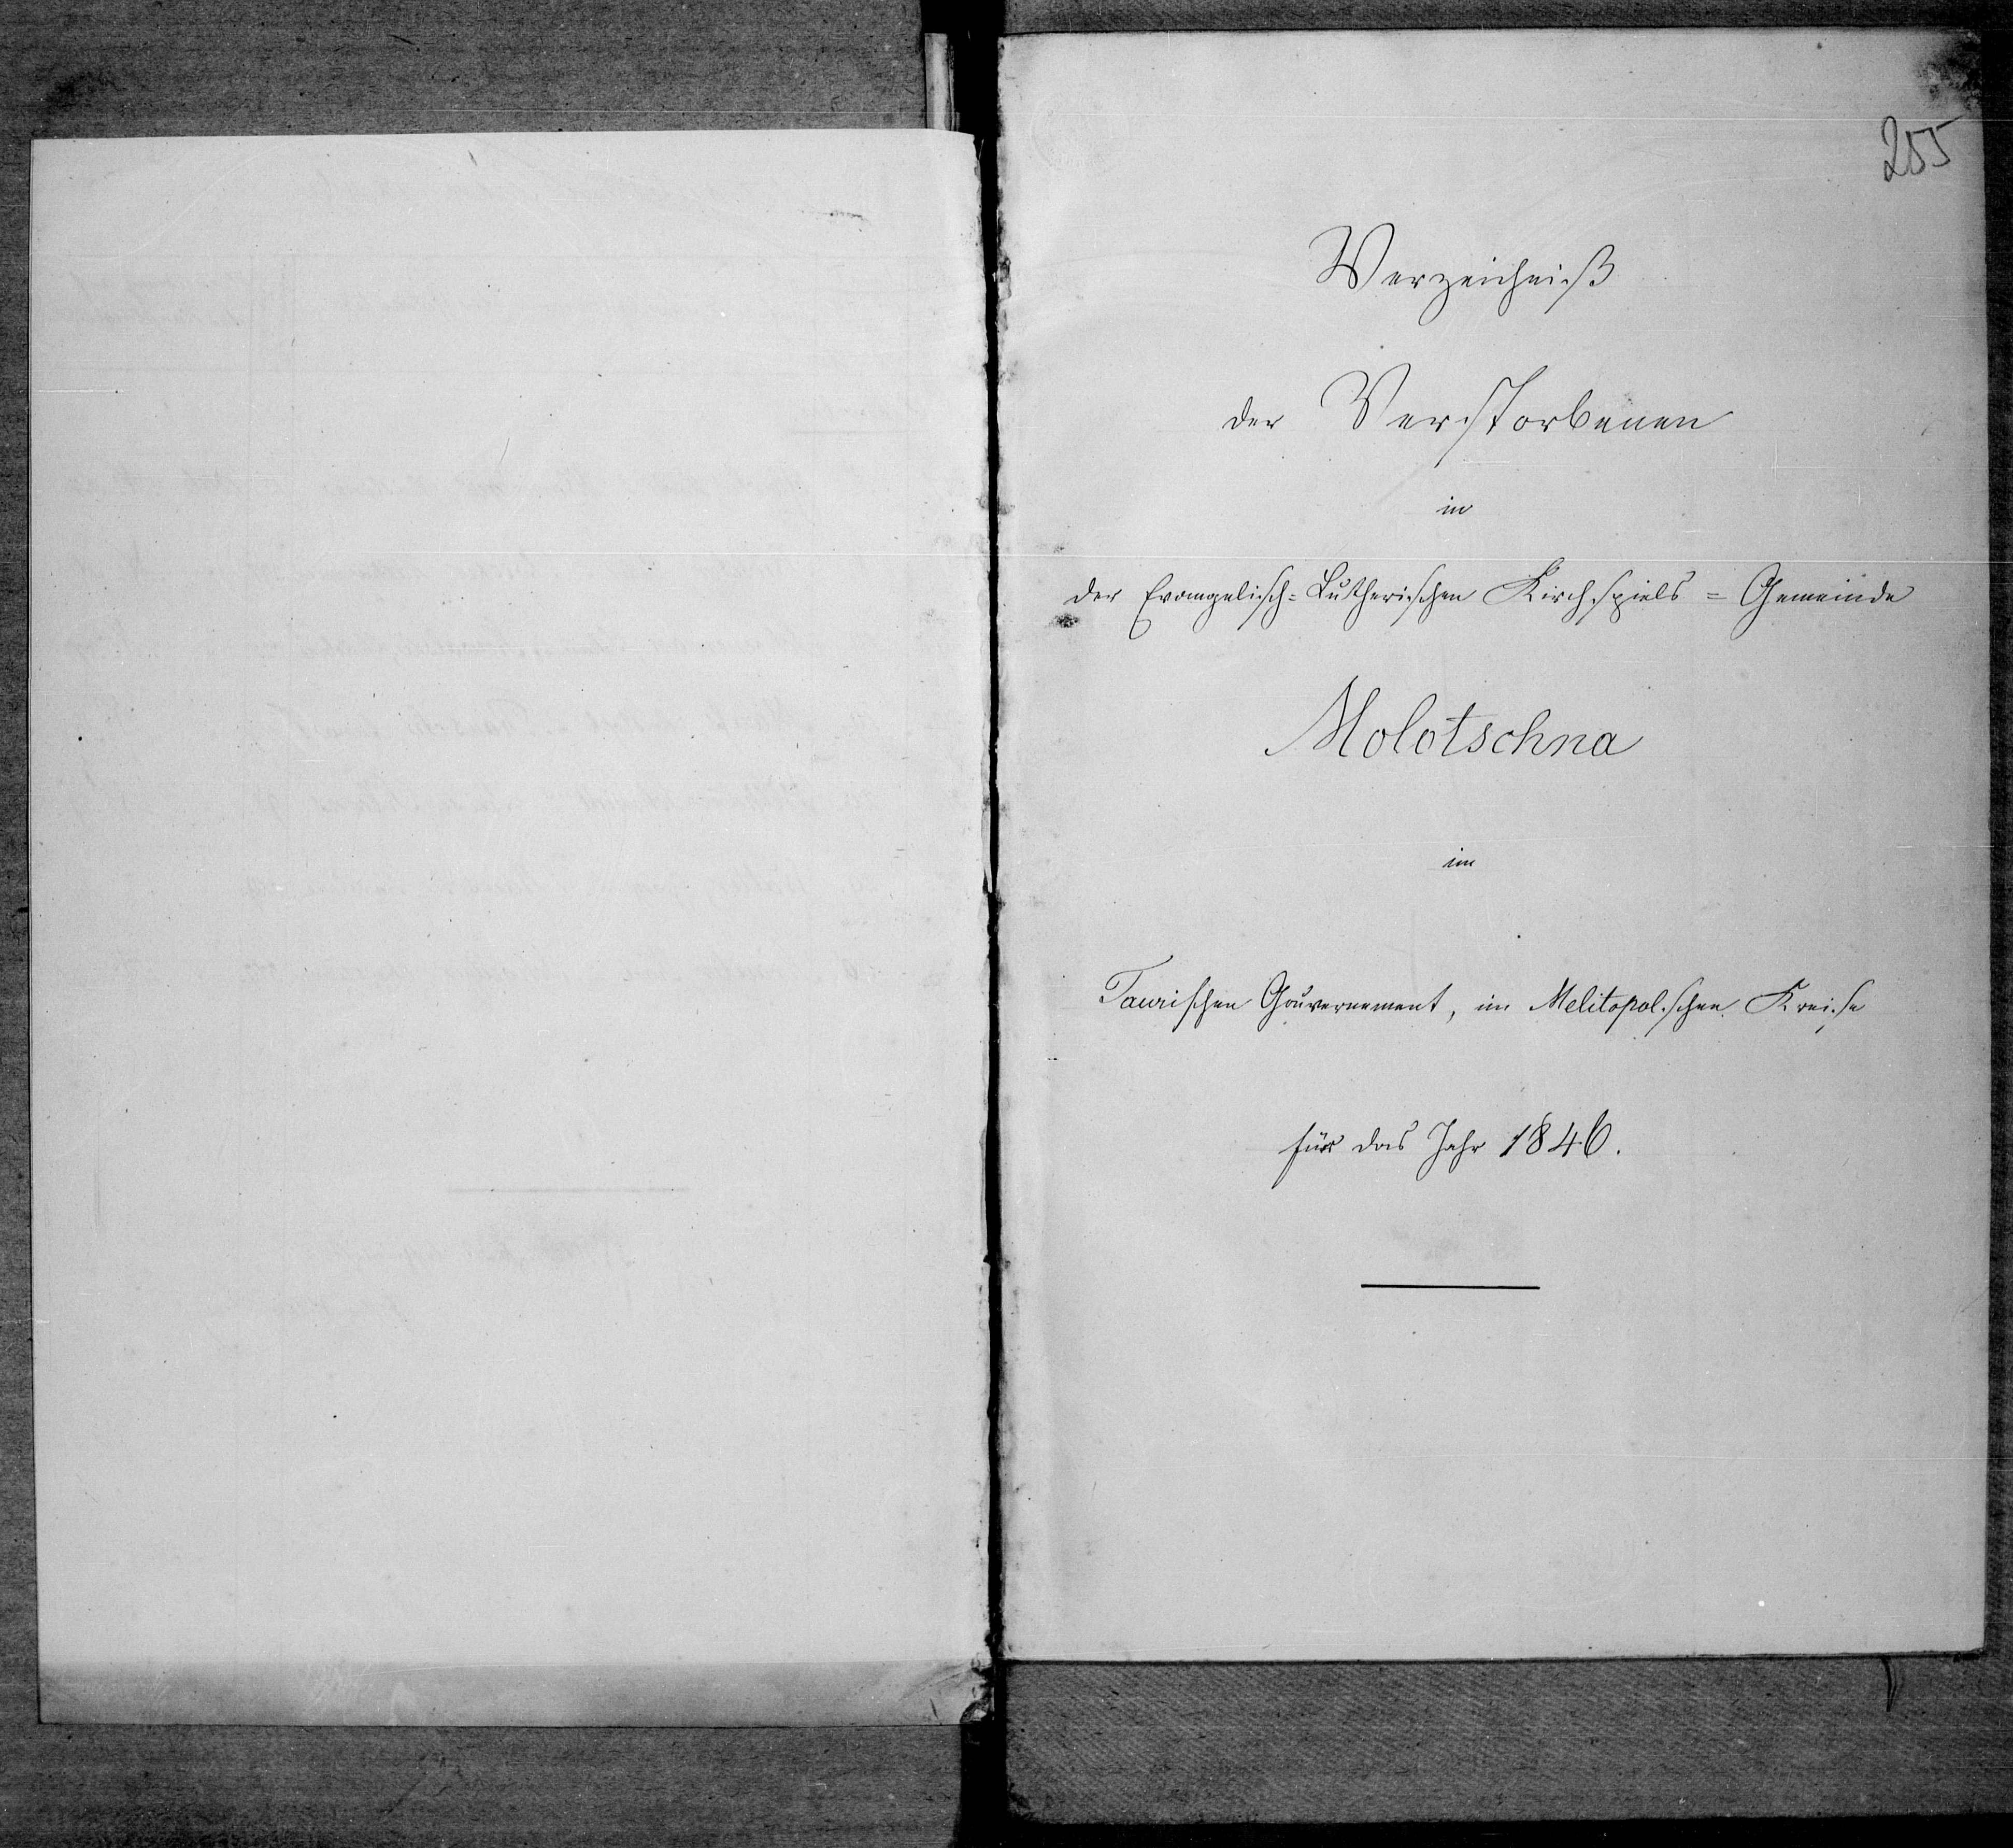 255
Verzeichniß
der Verstorbenen
in
der Evangelisch-Lutherischen Kirchspiels = Gemeinde
Molotschna
im
Taurischen Gouvernement, im Melitopol.schen Kreise
für das Jahr 1846.